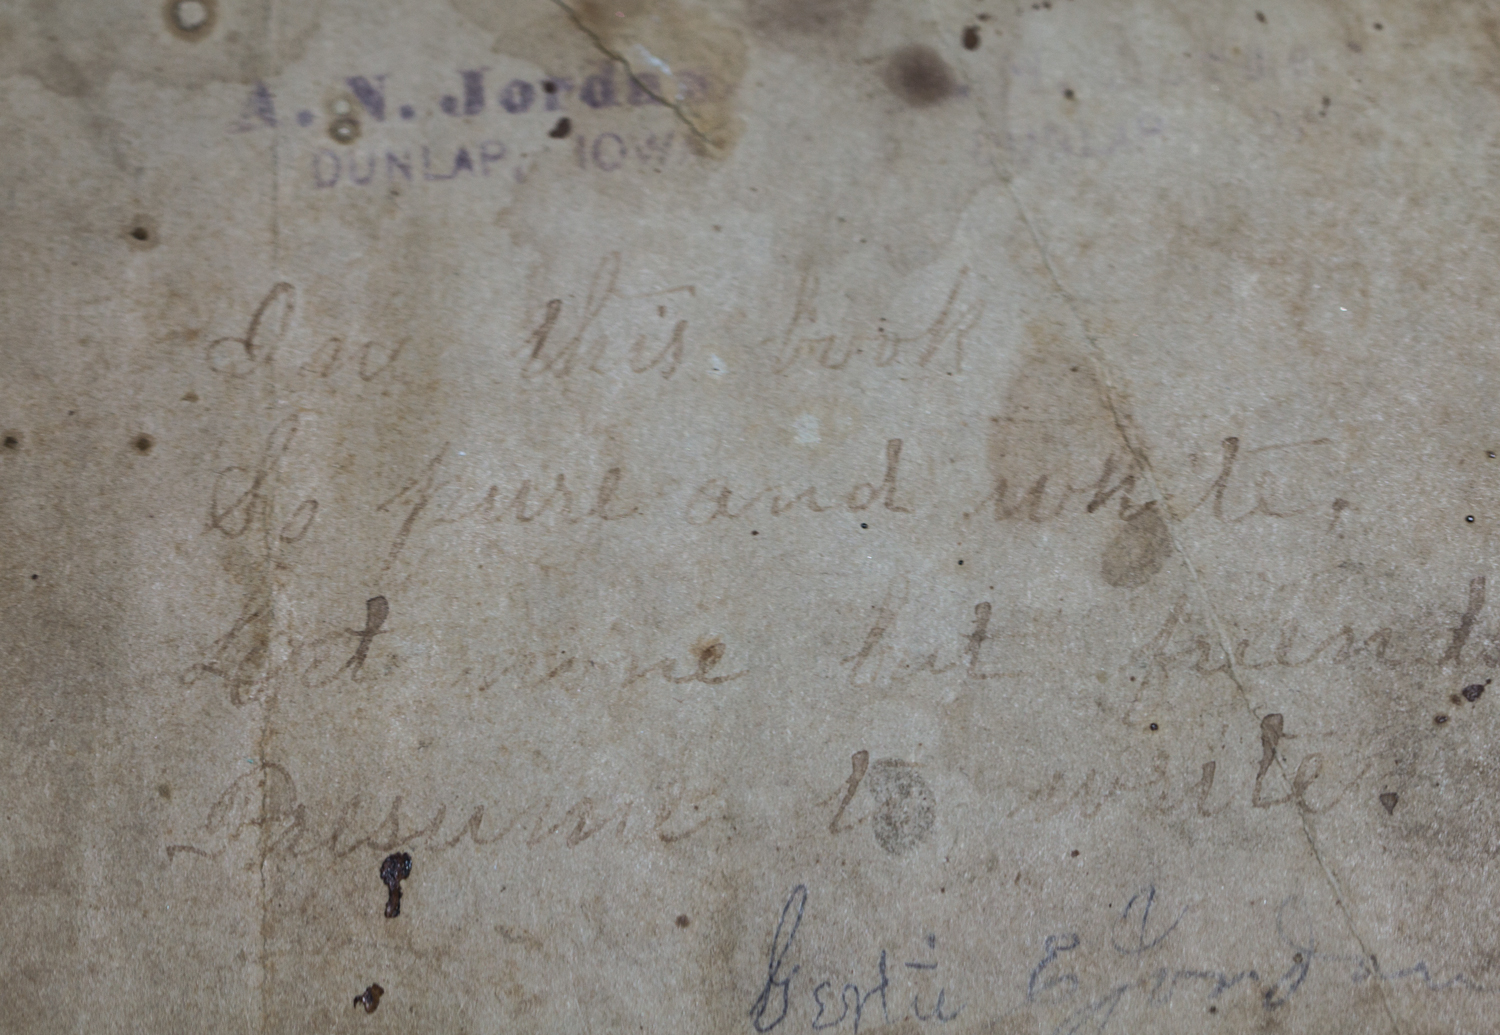 A. N. Jordan
DUNLAP, IOWA
DUNLAP
In this book
So pure and white,
Let none but friends
Presume to write.
Gertie E Jordan